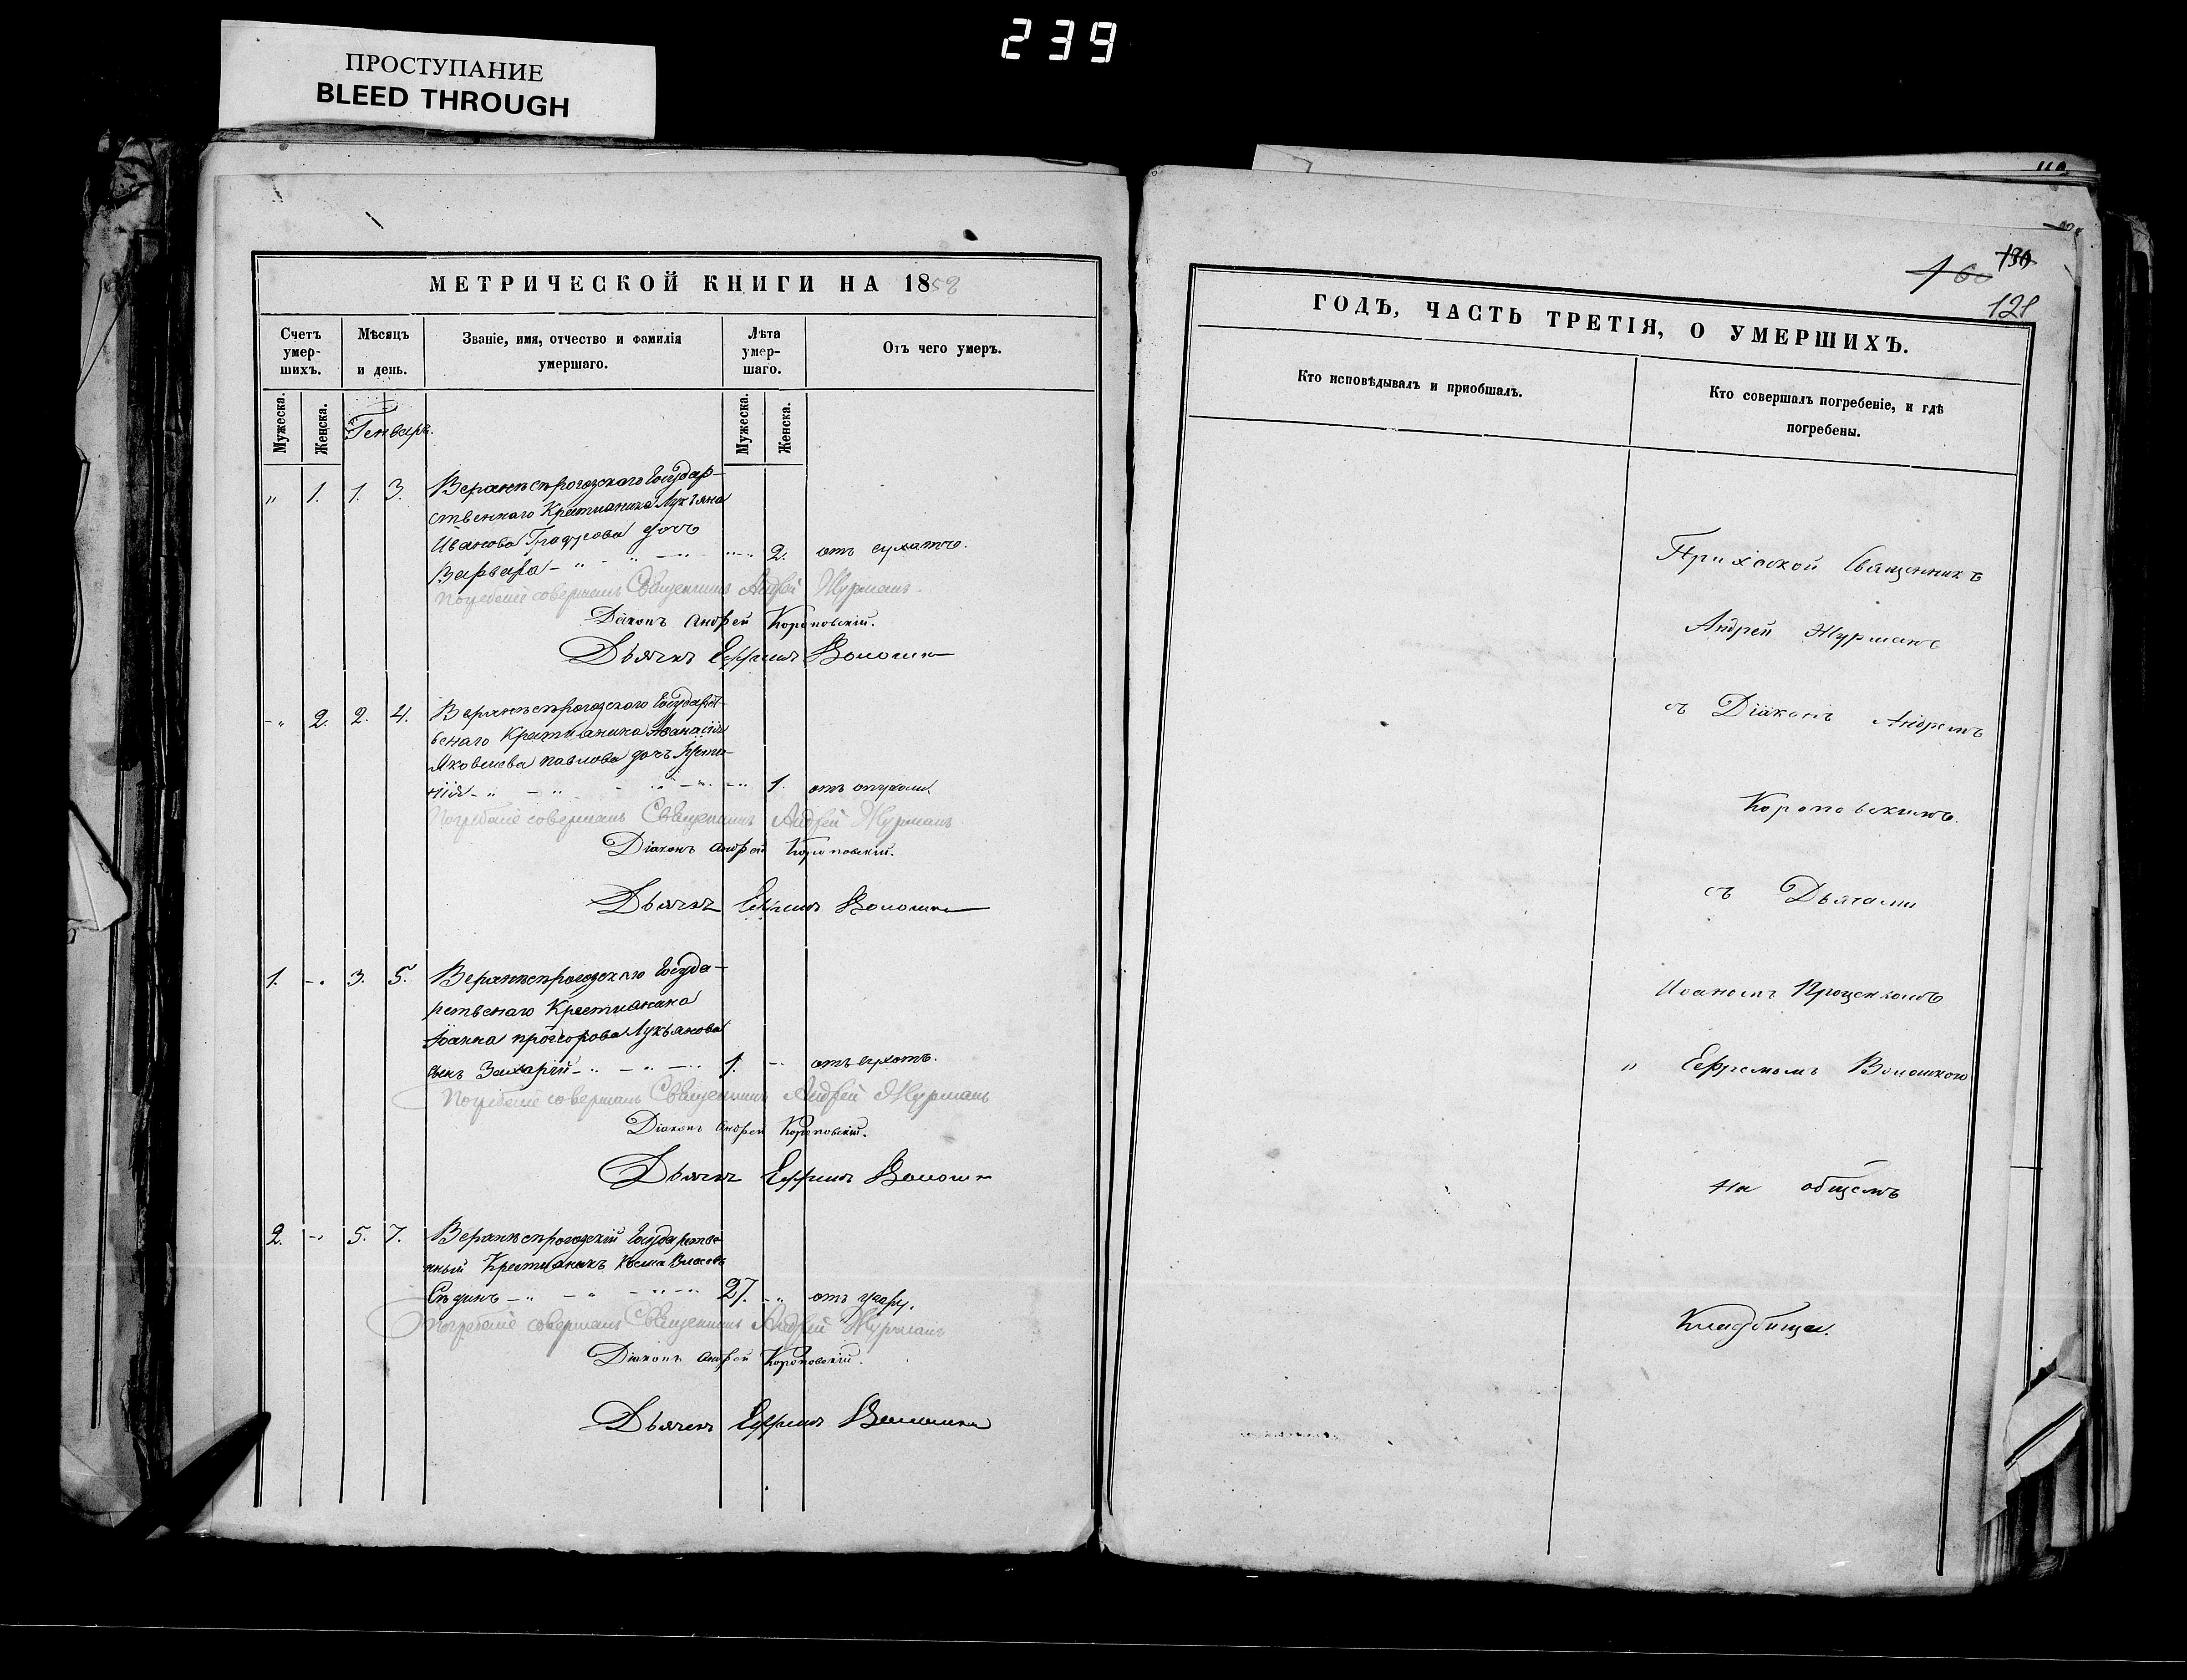 239
ПРОСТУПАНИЕ
BLEED THROUGH
МЕТРИЧЕСКОЙ КНИГИ НА 1858
Счетъ умер-шихъ.
Мѣсяцъ и день.
Званіе, имя, отчество и фамилія умершаго.
Лѣта умер-шаго.
Отъ чего умеръ.
Мужеска. Женска.
Генварь.
Мужеска. Женска.
" 1. 1. 3. Верхнѣсѣрогозскаго Государ-
ственнаго Крестианина Лукьяна
Иванова дочь
Варвара - " - " - " 2. отъ сухотъ.
Погребение совершалъ Священникъ Андрей Журманъ.
Діаконъ Андрей Короповскій.
Дьячекъ Ефремъ Волошин
- " 2. 2. 4. Верхнѣсѣрогозского Государст-
венаго Крестианина Афанасія
Яковлева Павлова дочь
нія - " - " - " 1. отъ опухоли.
Погребение совершалъ Священникъ Андрей Журманъ
Діаконъ Андрей Короповскій.
Дьячекъ Ефремъ Волошин
1. - " 3. 5. Верхнѣсѣрогозского Госуда-
рственаго Крестианина
Іоанна Прохорова Лукьянова
сынъ Захарій - " - " - " 1. - " отъ сухотъ.
Погребение совершалъ Священникъ Андрей Журманъ
Діаконъ Андрей Короповскій.
Дьячекъ Ефремъ Волошин
2. - " 5. 7. Верхнѣсѣрогозскій Государстве-
нный Крестианинъ Косма Власовъ
Сѣдинъ - " - " - " 27. - " отъ угару.
Погребение совершалъ Священникъ Андрей Журманъ
Діаконъ Андрей Короповскій.
Дьячекъ Ефремъ Волошин
130
121
ГОДЪ, ЧАСТЬ ТРЕТІЯ, О УМЕРШИХЪ.
Кто исповѣдывалъ и пріобщалъ.
Кто совершалъ погребеніе, и гдѣ погребены.
Приходской Священникъ
Андрей Журманъ
съ Діакономъ Андреемъ
Короповскимъ.
съ Дьячами
Иоаномъ Проценкомъ
" Ефремомъ Волошкого
На общемъ
Кладбище.